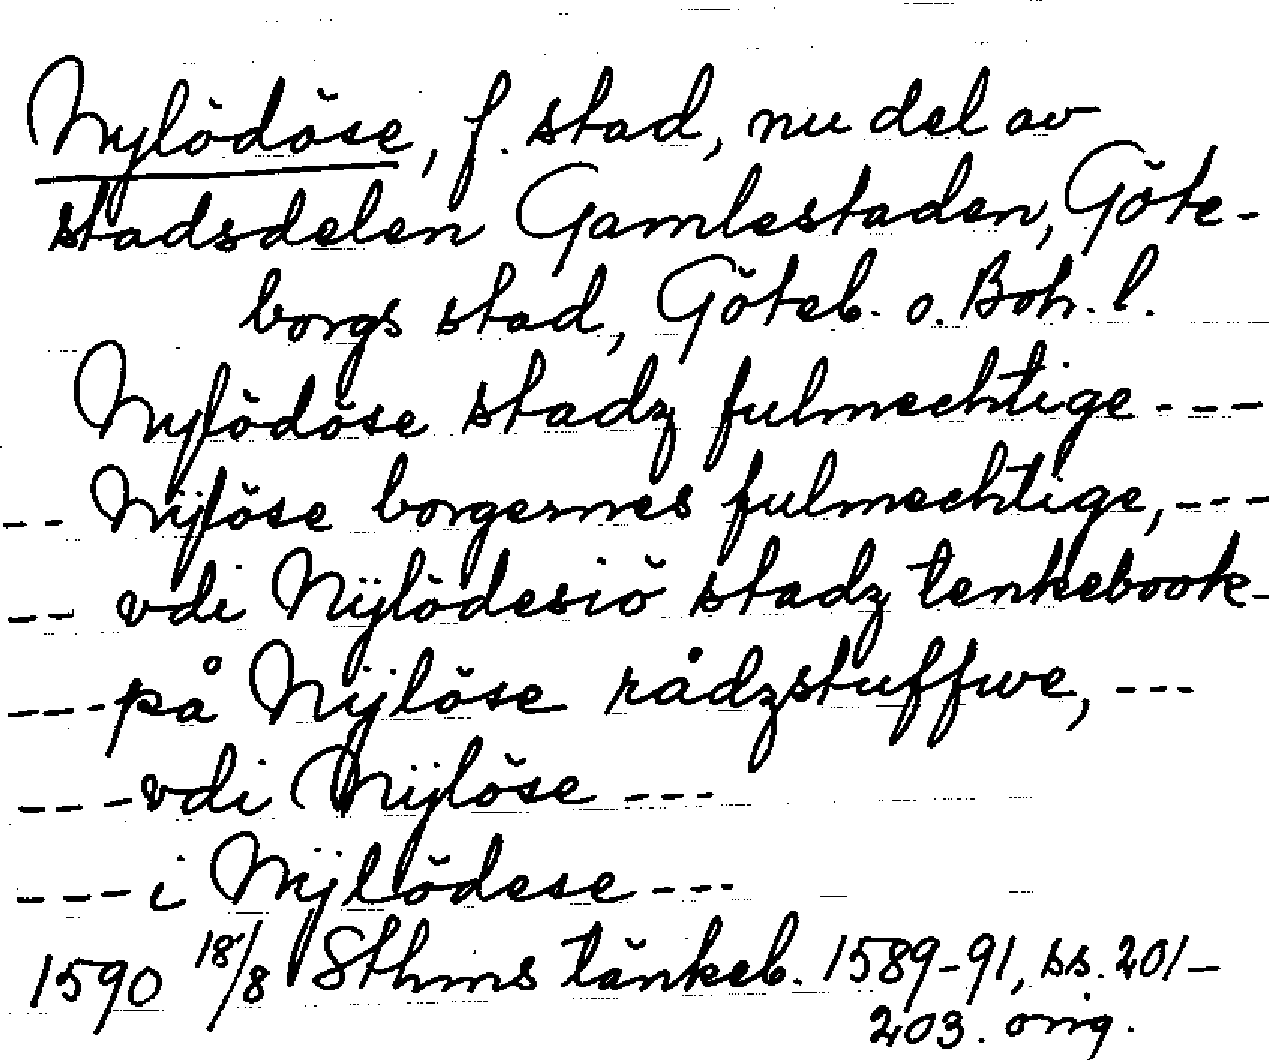 Nylödöse, f. stad, nu del av
stadsdelen Gamlestaden, Göte-
borgs stad, Göteb. o. Boh. l.
Nylödöse stadz fulmechtige ---
-- Nijlöse borgernes fulmechtige, ---
-- vdi Nÿlödesiö stadz tenkebook-
--- på Nÿlöse rådzstuffwe, ---
--- vdi Nÿlöse ---
--- i Nÿlödese ---
1590 18/8 Sthms tänkeb. 1589-91, ss. 201-
203. orig.